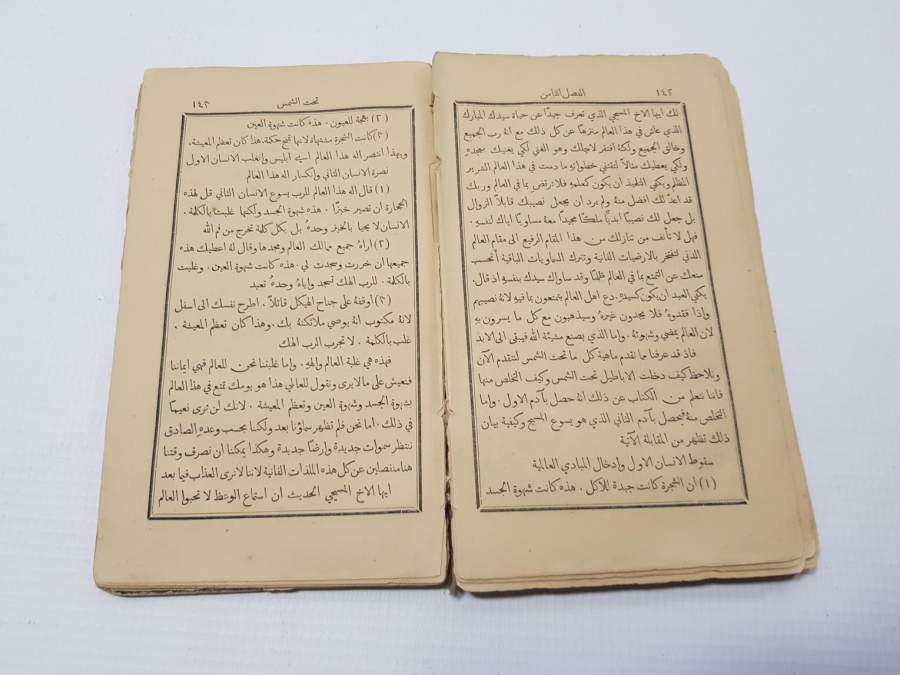 الفصل الثامن ١٤٢
لك ايها الاخ المسيحي الذي تعرف جيدًا عن حياة سيدك المبارك
الذي عاش في هذا العالم منزهًا عن كل ذلك مع انهُ رب الجميع
وخالق الجميع ولكنهُ افتقر لاجلك وهو الغني لكي يغنيك بمجدهِ
ولكي يعطيك مثالًا لتقتفي خطواتهِ ما دمت في هذا العالم الشرير
المظلم ويكفي التلميذ ان يكون كمعلمهِ فلا ترتضِ بما في العالم وربك
قد اعدَّ لك افضل منهُ ولم يرد ان يجعل نصيبك قابلًا الزوال
بل جعل لك نصيبًا ابديًا ملكًا مجيدًا معهُ مساويًا اياك لنفسهِ.
فهل لا تأنف من تنازلك من هذا المقام الرفيع الى مقام العالم
الدني لتفتخر بالارضيات الفانية وتترك السماويات الباقية أتحسب
منعك عن التمتع بما في العالم ظلمًا وقد ساواك سيدك بنفسهِ اذ قال.
يكفي العبد ان يكون كسيدهِ. دع اهل العالم يتمتعون بما فيهِ لانهُ نصيبهم
وإذا فقدوهُ فلا يجدون غيرهُ وسيذهبون مع كل ما يسرون بهِ
لان العالم يمضي وشهوتهُ. وإما الذي يصنع مشيئة الله فيبقى الى الابد
فاذ قد عرفنا ما تقدم ماهية كل ما تحت الشمس لنتقدم الآن
ونلاحظ كيف دخلت الاباطيل تحت الشمس وكيف التخلص منها
فاننا نتعلم من الكتاب عن ذلك انهُ حصل بآدم الاول. وإما
التخلص منهُ فيحصل بآدم الثاني الذي هو يسوع المسيح وكيفية بيان
ذلك تظهر من المقابلة الآتية
سقوط الانسان الاول وإدخال المبادي العالمية
(١) ان الشجرة كانت جيدة للأكل. هذه كانت شهوة الجسد
تحت الشمس ١٤٣
(٢) بهجة للعيون. هذه كانت شهوة العين
(٣) كانت الشجرة مشتهاة لانها تمنح حكمة. هذا كان تعظم المعيشة.
وبهذا انتصر اله هذا العالم اي ابليس وإنغلب الانسان الاول
نصرة الانسان الثاني وإنكسار اله هذا العالم
(١) قال اله هذا العالم للرب يسوع الانسان الثاني قل لهذه
الحجارة ان تصير خبزًا. هذه شهوة الجسد ولكنها غلبت بالكلمة.
الانسان لا يحيا بالخبز وحدهُ بل بكل كلمة تخرج من فم الله
(٢) اراهُ جميع ممالك العالم ومجدها وقال لهُ اعطيك هذه
جميعها ان خررت وسجدت لي. هذه كانت شهوة العين. وغلبت
بالكلمة. للرب الهك تسجد وإياهُ وحدهُ تعبد
(٣) اوقفهُ على جناح الهيكل قائلًا. اطرح نفسك الى اسفل
لانهُ مكتوب انهُ يوصي ملائكتهُ بك. وهذا كان تعظم المعيشة.
غلب بالكلمة. لا تجرب الرب الهك
فهذه هي غلبة العالم وإلههِ. وإما غلبتنا نحن للعالم فهي ايماننا
فنعيش على ما لا يرى ونقول للعالمي هذا هو يومك تمتع في هذا العالم
بشهوة الجسد وشهوة العين وتعظم المعيشة. لانك لن ترى نعيمًا
في ذلك. اما نحن فلم تظهر سماؤنا بعد ولكننا بحسب وعدهِ الصادق
ننتظر سموات جديدة وإرضًا جديدة وهكذا يمكننا ان نصرف وقتنا
هنا منفصلين عن كل هذه الملذات الفانية لاننا لا نرى العذاب فيما بعد
ايها الاخ المسيحي الحديث ان استماع الوعظ لا تحبوا العالم